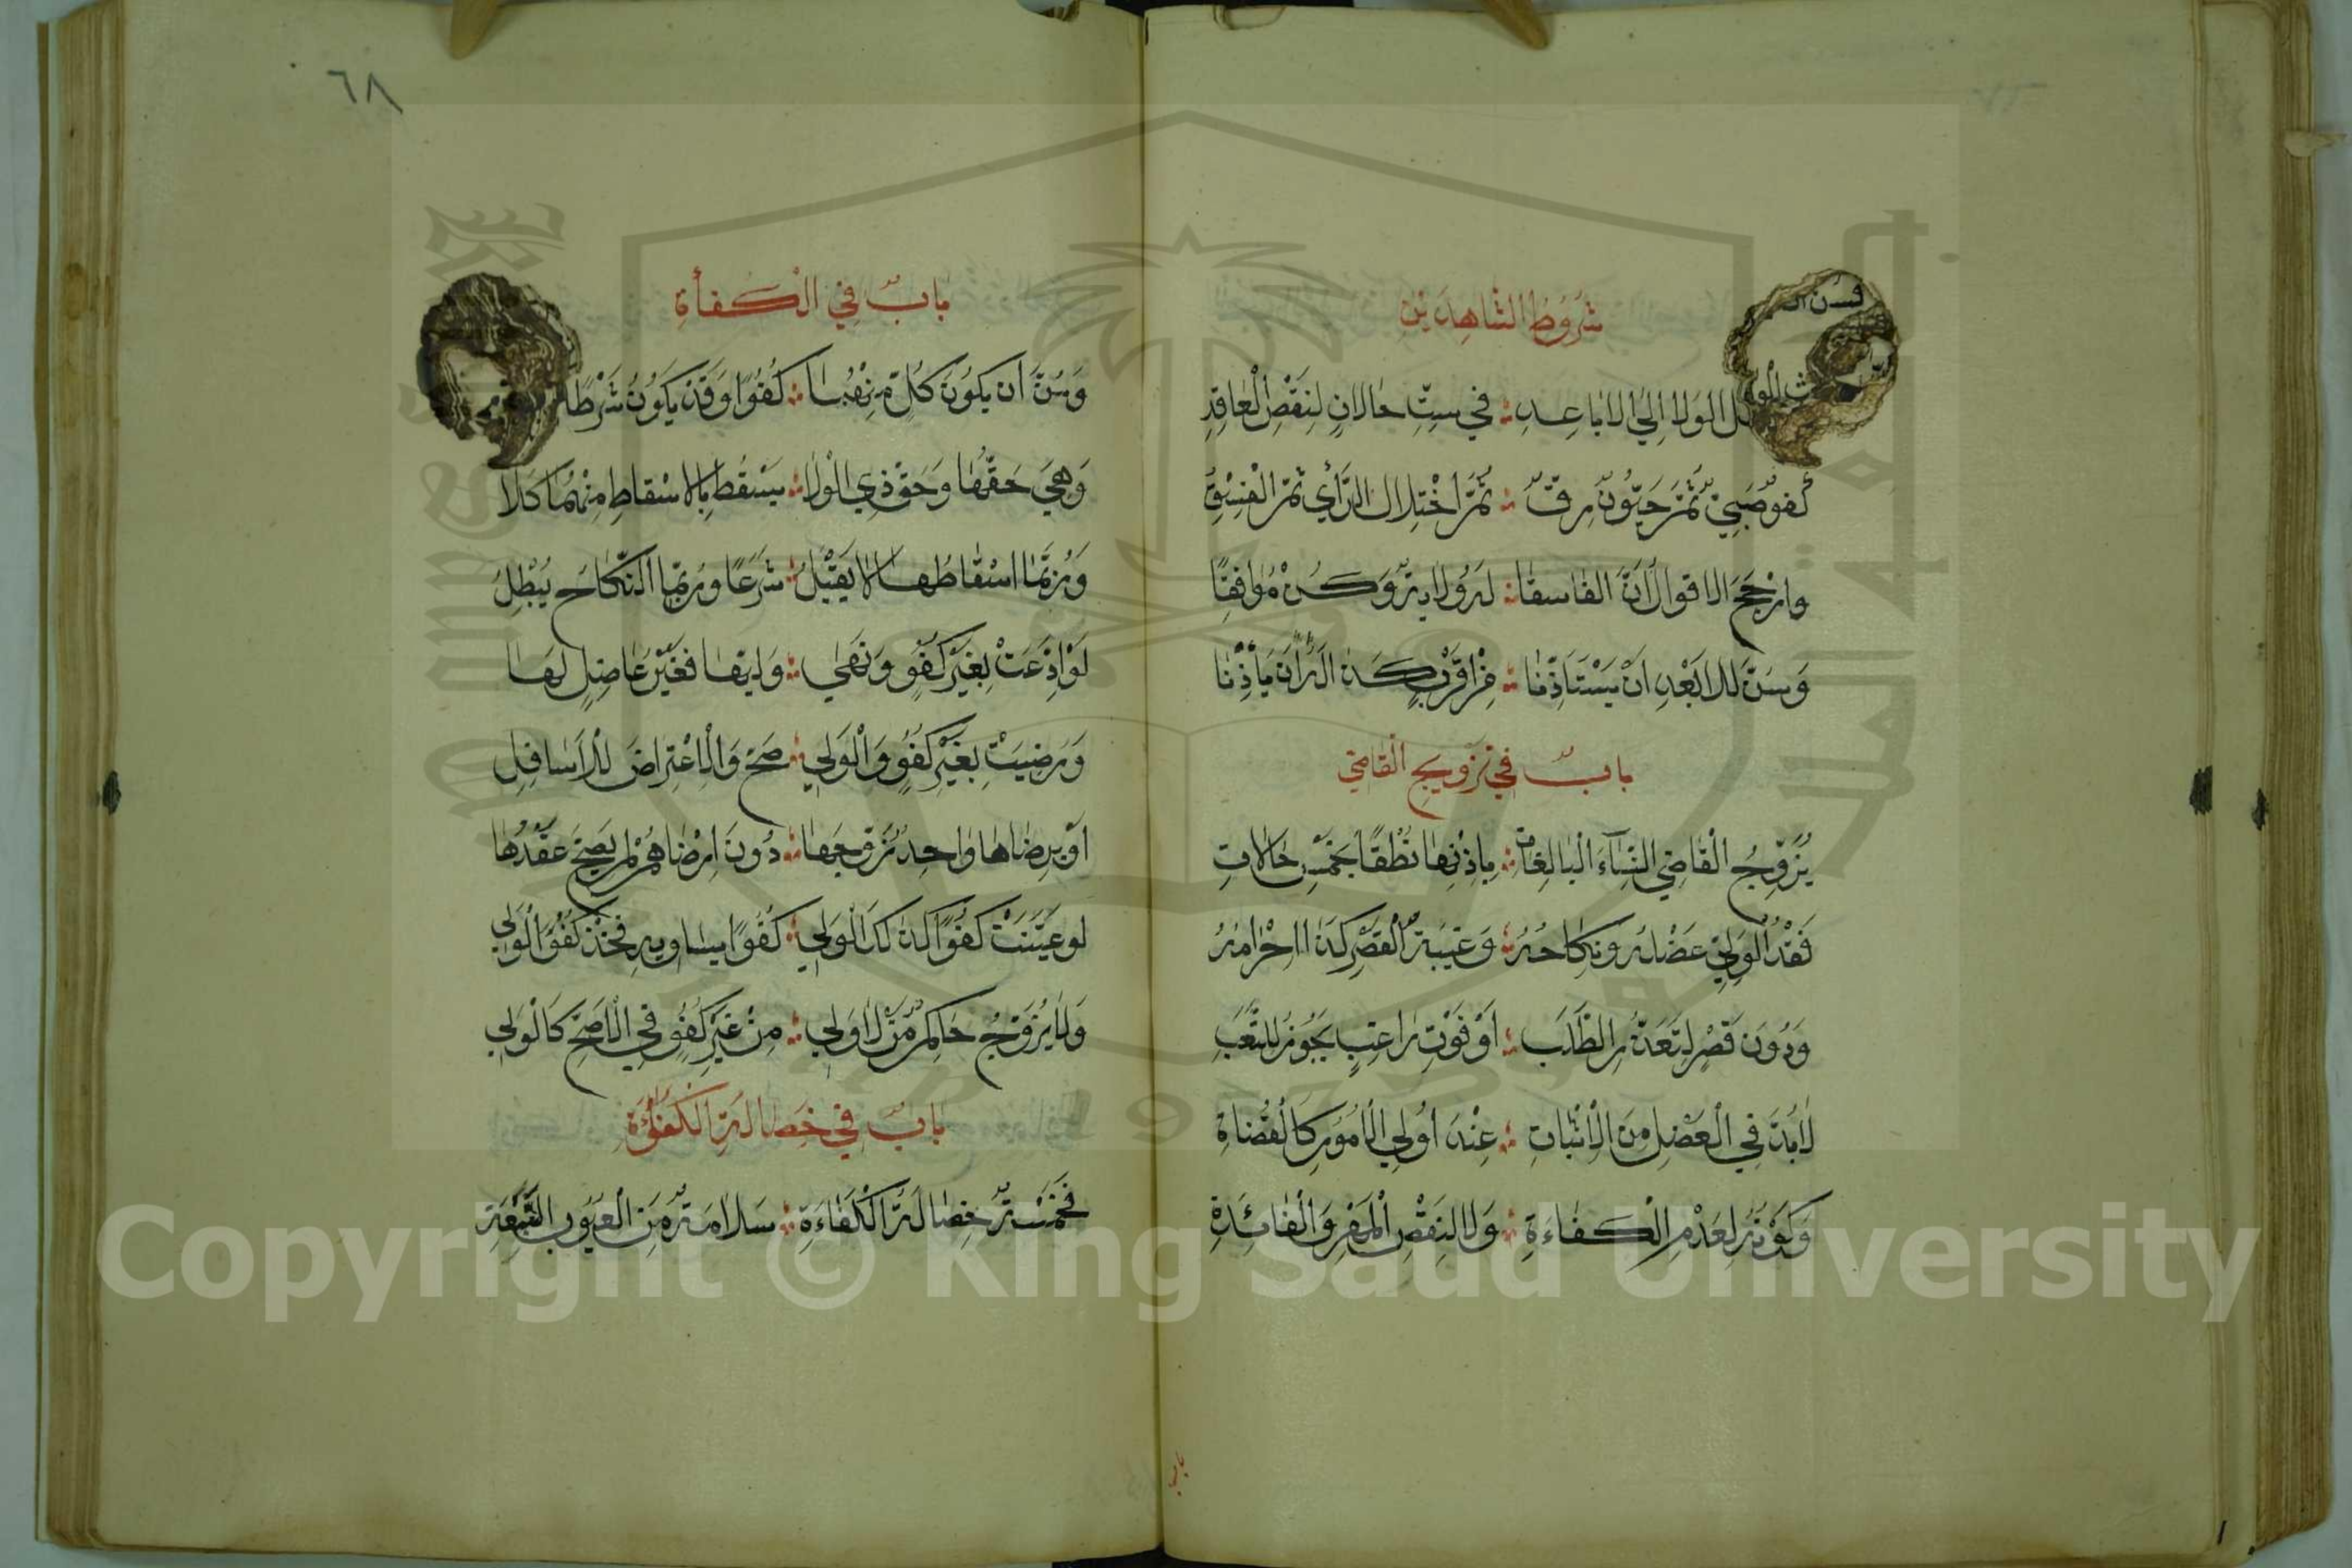 شُرُوطُ الشَّاهِدَيْنِ
الولا إلى الاباعد ؞ في ستِّ حالاتٍ لنقص العاقد
صبيٌّ ثم جنونٌ رقٌّ ؞ ثم اختلال الرأي ثم الفسق
وارجح الاقوال أنَّ الفاسقا ؞ وكن موافقًا
وسنَّ للابعد ان يستأذنا ؞ أن يأذنا
بابٌ في تزويج القاضي
يُزَوِّجُ القاضي النِّسَاءَ البالغات ؞ بإذنها نطقًا بخمس حالات
فقد الولي عضله ونكاحه ؞ وغيبة القصر كذا احرامه
ودون قصر لتعذر الطلب ؞ أو فوت راغب يجوز للتعب
لابد في العضل من الاثبات ؞ عند أولي الأمور كالقضاة
وكونه لعدم الكفاءة ؞ ولا لنقص المهر والفائدة
باب
٦٨
بابٌ في الكفأة
وسنَّ ان يكون كلٌّ منهما ؞ كفوًا وقد يكون شرطًا
وهي حقها وحق ذي الولا ؞ يسقط بالاسقاط منهما كلا
وربما اسقاطها لا يقبل ؞ شرعًا وربما النكاح يبطل
لو اذعت بغير كفو ونفى ؞ وليها فغير عاضل لها
ورضيت بغير كفو والولي ؞ صح والاعتراض للاسافل
أو برضاها واحد زوجها ؞ دون رضاهم لم يصح عقدها
لو عينت كفوًا كذلك الولي ؞ كفوًا يساويه فخذ كفو الولي
ولا يزوج حاكم من لا ولي ؞ من غير كفو في الاصح كالولي
بابٌ في خصال الكفاءة
فخمسة خصال الكفاءة ؞ سلامة من العيوب
Copyright © King Saud University